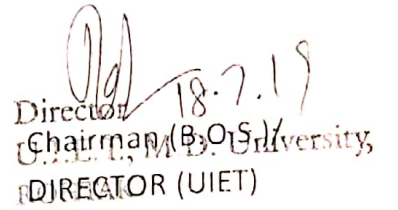 18.7.19
Director
Chairman (B.O.S.)/
U.I.E.T., M.D. University,
DIRECTOR (UIET)